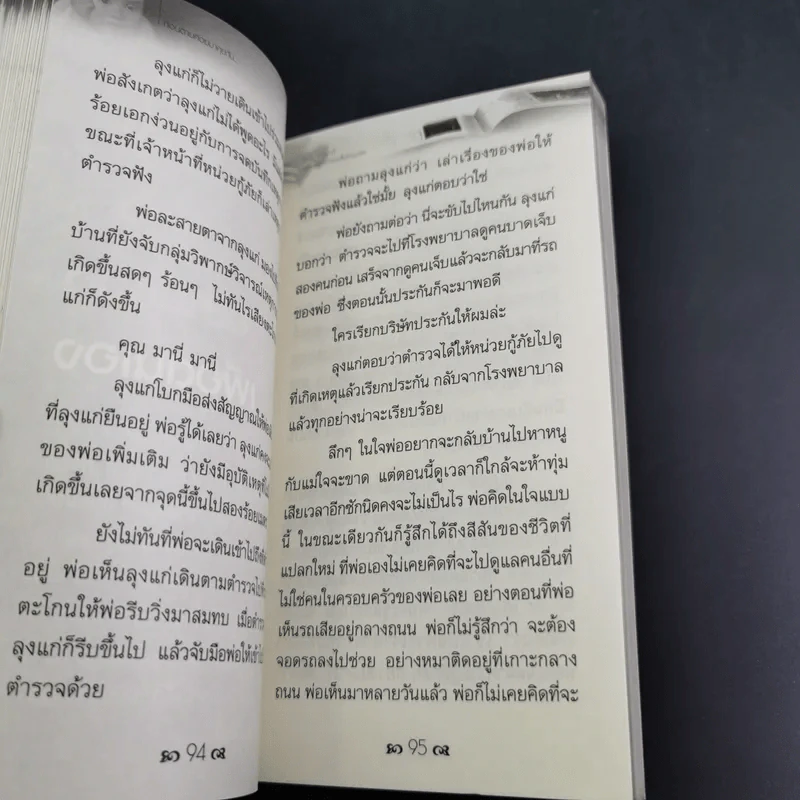 ลุงแก่ก็ไม่วายเดินเข้าไป
พ่อสังเกตว่าลุงแก่ไม่ได้พูดอะไร
ร้อยเอกง่วนอยู่กับการจดบันทึก
ขณะที่เจ้าหน้าที่หน่วยกู้ภัยก็เล่า
ตำรวจฟัง
พ่อละสายตาจากลุงแก่
บ้านที่ยังจับกลุ่มวิพากษ์วิจารณ์เหตุ
เกิดขึ้นสดๆ ร้อนๆ ไม่ทันไรเสียง
แก่ก็ดังขึ้น
คุณ มานี่ มานี่
ลุงแก่โบกมือส่งสัญญาณให้
ที่ลุงแก่ยืนอยู่ พ่อรู้ได้เลยว่า ลุงแก่
ของพ่อเพิ่มเติม ว่ายังมีอุบัติเหตุ
เกิดขึ้นเลยจากจุดนี้ขึ้นไปสองร้อยเมตร
ยังไม่ทันที่พ่อจะเดินเข้าไปถึง
อยู่ พ่อเห็นลุงแก่เดินตามตำรวจไป
ตะโกนให้พ่อรีบวิ่งมาสมทบ เมื่อตำรวจ
ลุงแก่ก็รีบขึ้นไป แล้วจับมือพ่อให้เข้า
ตำรวจด้วย
94
พ่อถามลุงแก่ว่า เล่าเรื่องของพ่อให้
ตำรวจฟังแล้วใช่มั้ย ลุงแก่ตอบว่าใช่
พ่อยังถามต่อว่า นี่จะขับไปไหนกัน ลุงแก่
บอกว่า ตำรวจจะไปที่โรงพยาบาลดูคนบาดเจ็บ
สองคนก่อน เสร็จจากดูคนเจ็บแล้วจะกลับมาที่รถ
ของพ่อ ซึ่งตอนนั้นประกันก็จะมาพอดี
ใครเรียกบริษัทประกันให้ผมล่ะ
ลุงแก่ตอบว่าตำรวจได้ให้หน่วยกู้ภัยไปดู
ที่เกิดเหตุแล้วเรียกประกัน กลับจากโรงพยาบาล
แล้วทุกอย่างน่าจะเรียบร้อย
ลึกๆ ในใจพ่ออยากจะกลับบ้านไปหาหนู
กับแม่ใจจะขาด แต่ตอนนี้ดูเวลาก็ใกล้จะห้าทุ่ม
เสียเวลาอีกซักนิดคงจะไม่เป็นไร พ่อคิดในใจแบบ
นี้ ในขณะเดียวกันก็รู้สึกได้ถึงสีสันของชีวิตที่
แปลกใหม่ ที่พ่อเองไม่เคยคิดที่จะไปดูแลคนอื่นที่
ไม่ใช่คนในครอบครัวของพ่อเลย อย่างตอนที่พ่อ
เห็นรถเสียอยู่กลางถนน พ่อก็ไม่รู้สึกว่า จะต้อง
จอดรถลงไปช่วย อย่างหมาติดอยู่ที่เกาะกลาง
ถนน พ่อเห็นมาหลายวันแล้ว พ่อก็ไม่เคยคิดที่จะ
95